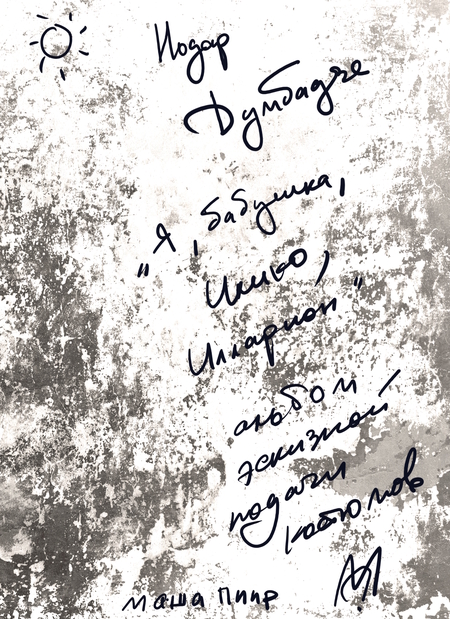 Нодар
Думбадзе
"Я, бабушка,
Илико,
Илларион"
альбом
эскизной
подачи
костюмов
маша пиир